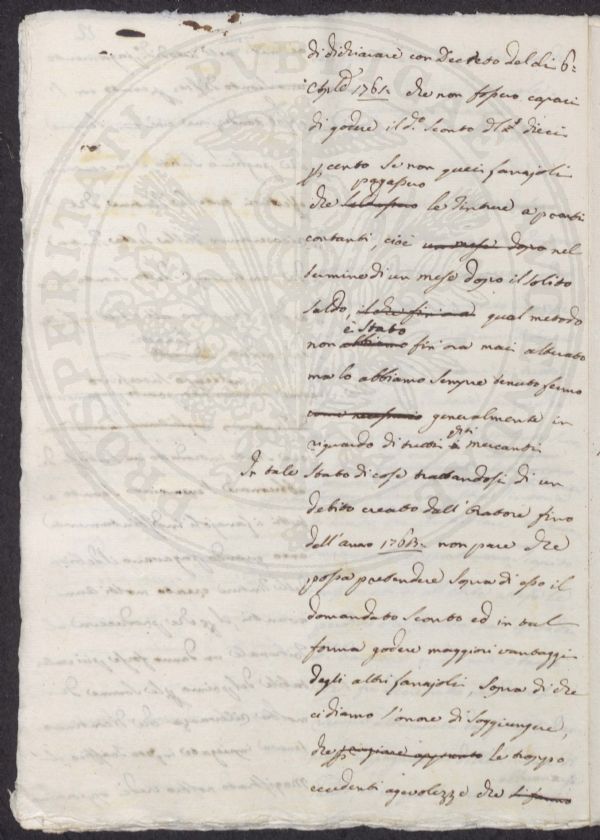 di dichiarare con Decreto del dì 6.
1761. che non fossero capaci
di godere il do. Sconto dieci
p cento se non quei fanajoli
pagassero
che le tinture a pronti
contanti, cioè un mese dopo nel
termine di un mese dopo il solito
saldo, qual metodo
è stato
non abbiamo fin ora mai alterato
ma lo abbiamo sempre tenuto fermo
come necessario generalmente in
riguardo di tutti i mercanti
In tale stato di cose trattandosi di un
debito creato dall'Oratore fino
dell'anno 1763. non pare che
possa pretendere sopra di esso il
domandato Sconto ed in tal
forma godere maggiori vantaggi
degli altri fanajoli, sopra di che
ci diamo l'onore di soggiungere,
che le troppo
eccedenti agevolezze che si fanno
PROSPERITATI PUBLICAE